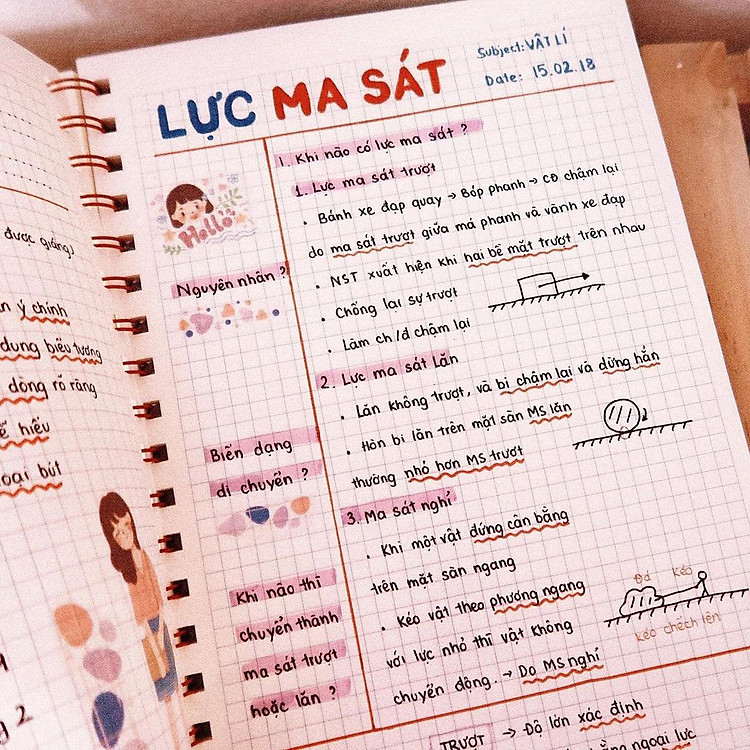 được giảng)
ý chính
dung biểu tượng
dòng rõ ràng
hiểu
bút
2
LỰC MA SÁT
Subject: VẬT LÍ
Date: 15.02.18
Hello
Nguyên nhân?
Biến dạng
di chuyển?
Khi nào thì
chuyển thành
ma sát trượt
hoặc lăn?
1. Khi nào có lực ma sát?
1. Lực ma sát trượt
• Bánh xe đạp quay → Bóp phanh → CĐ chậm lại
do ma sát trượt giữa má phanh và vành xe đạp
• NST xuất hiện khi hai bề mặt trượt trên nhau
• Chống lại sự trượt
• Làm ch/đ chậm lại
2. Lực ma sát lăn
• Lăn không trượt, và bị chậm lại và dừng hẳn
• Hòn bi lăn trên mặt sàn MS lăn
thường nhỏ hơn MS trượt
3. Ma sát nghỉ
• Khi một vật đứng cân bằng
trên mặt sàn ngang
• Kéo vật theo phương ngang
với lực nhỏ thì vật không
chuyển động. → Do MS nghỉ
Đá kéo
kéo chếch lên
TRƯỢT → Độ lớn xác định
ngoại lực